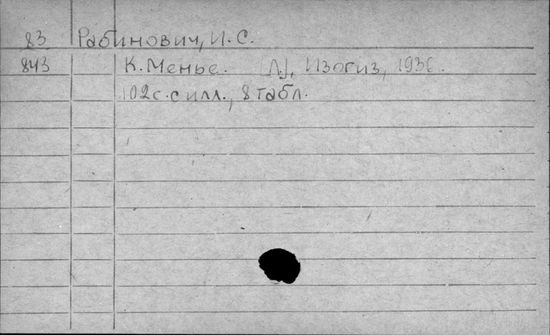 83 Рабинович, И. С.
843 К. Менье. [Л], Изогиз, 193
102 с. с илл., 8 табл.